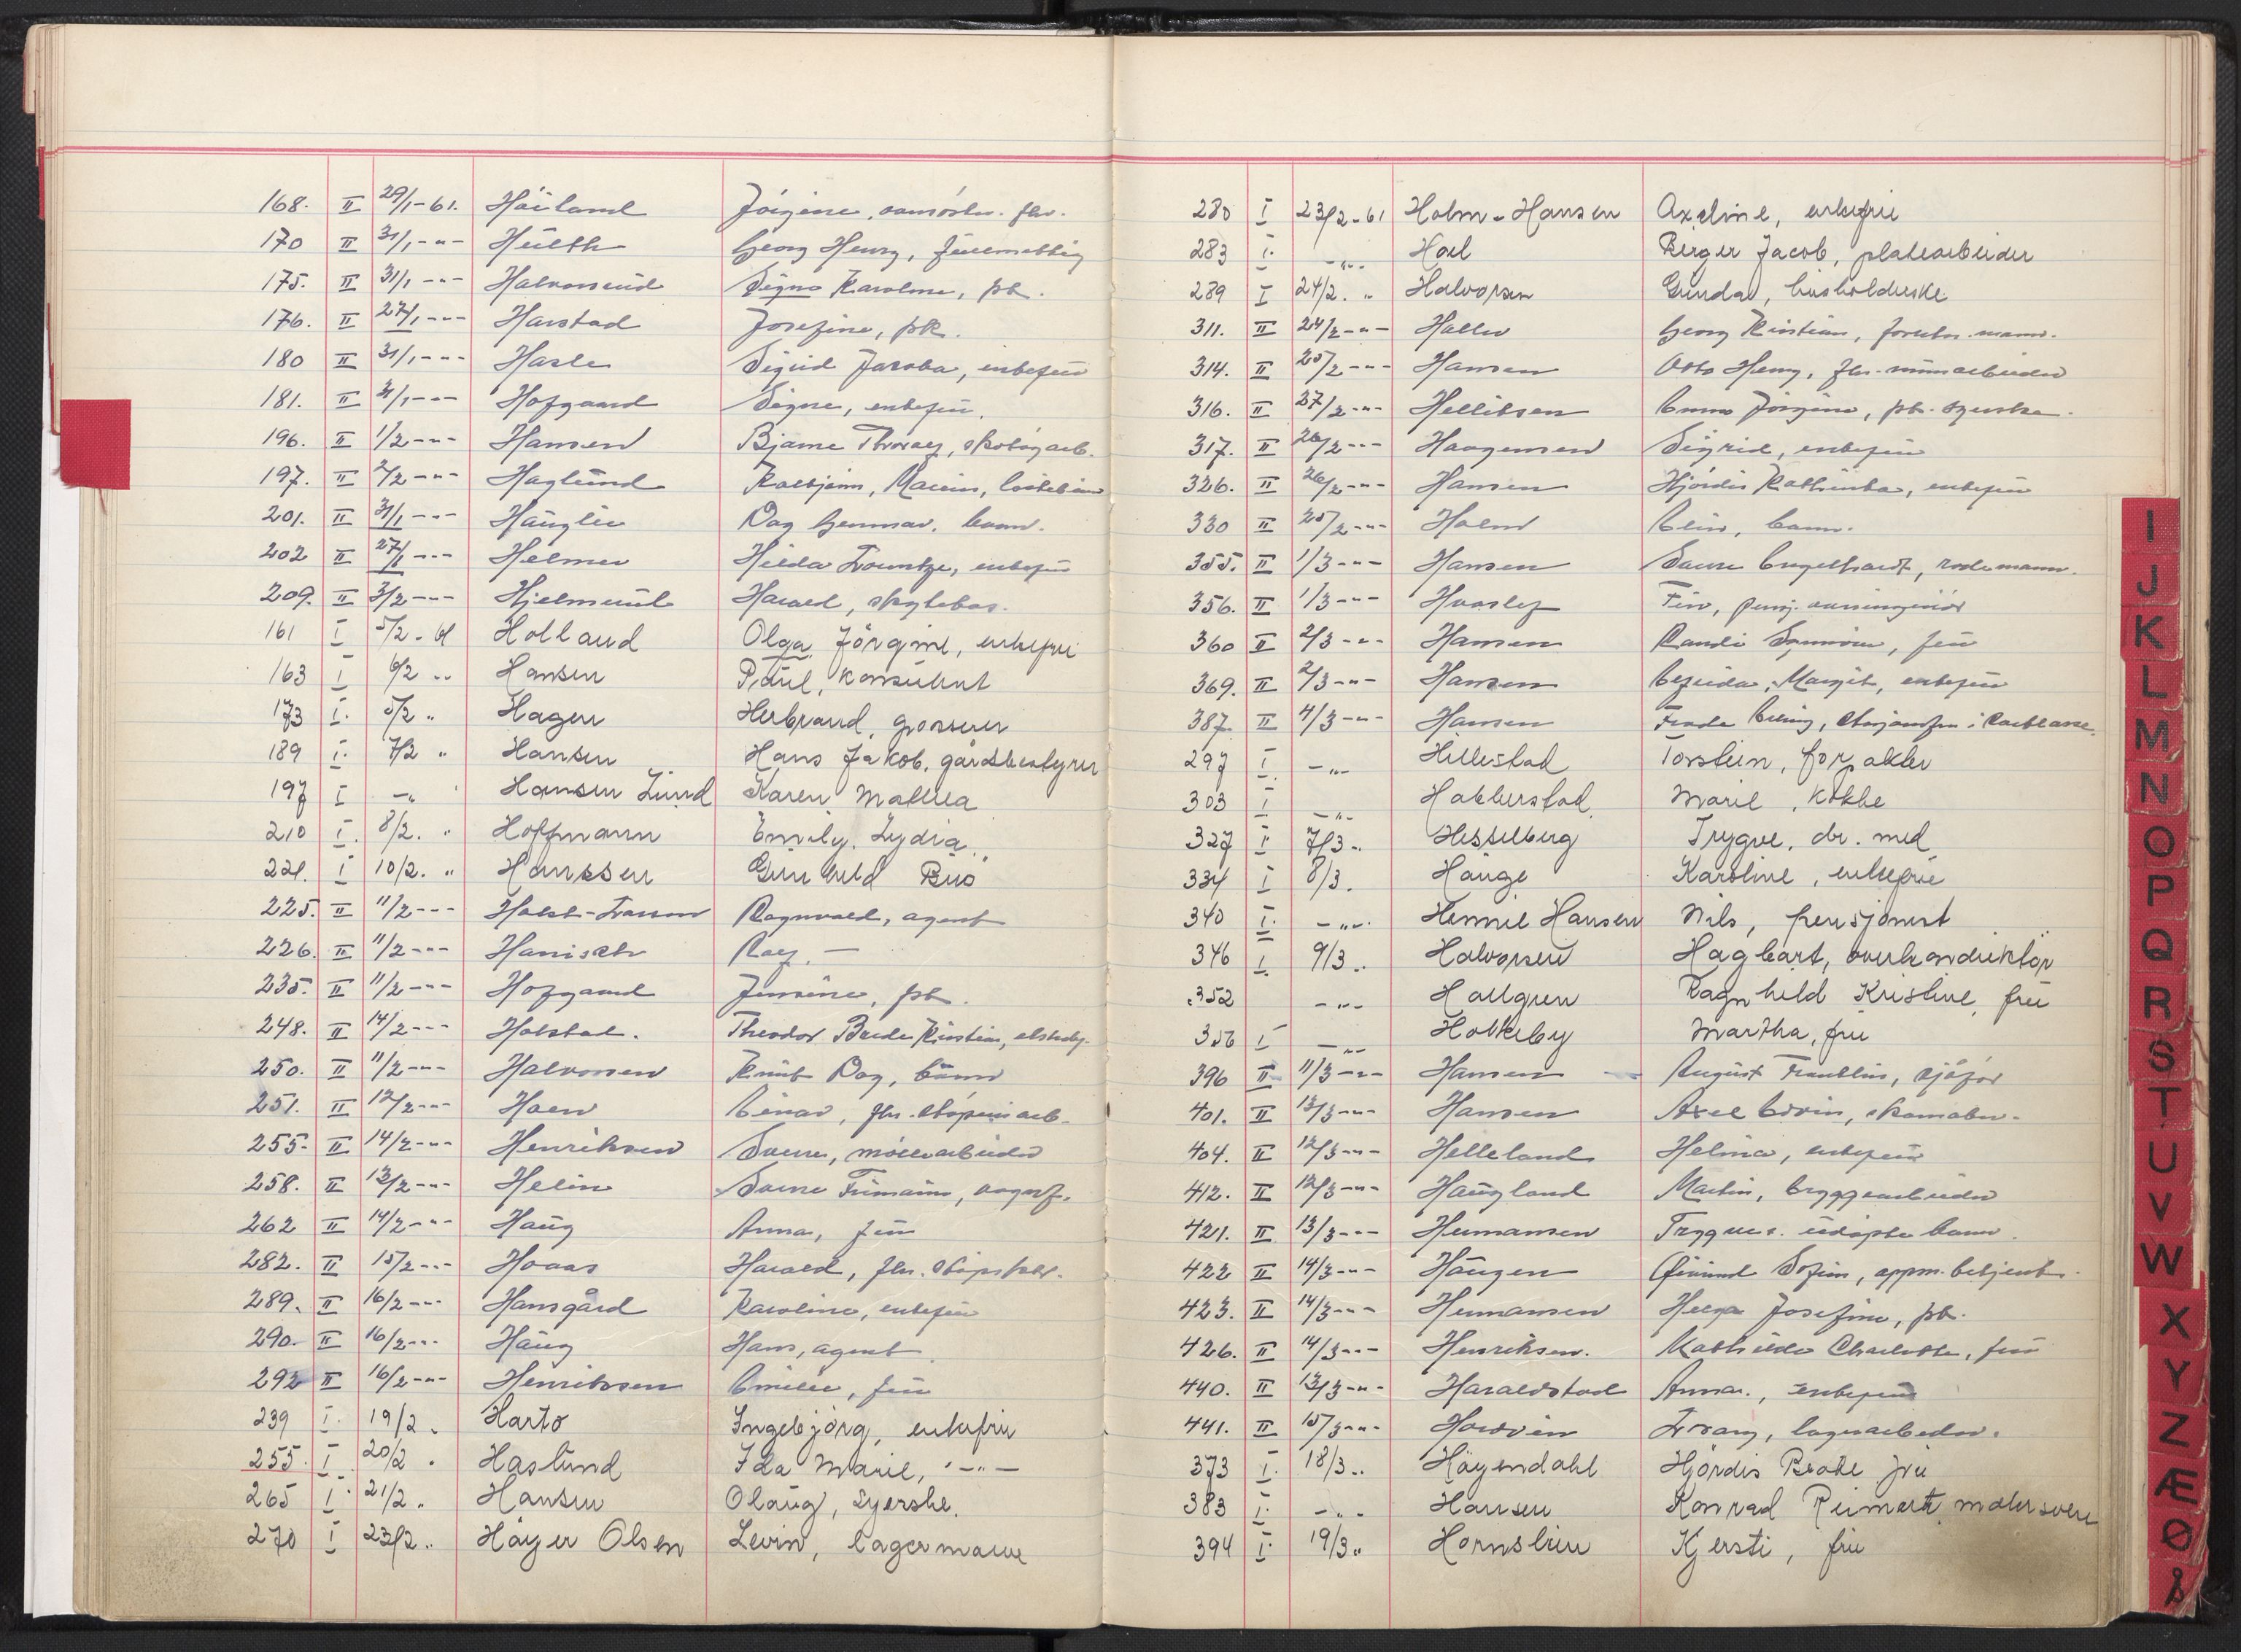 168. II 29/1-61. Høiland Jørgine,
170 II 31/1-"- Hülth Georg Henry,
175. II 31/1-"- Halvorsrud Signe Karoline, pb.
176. II 27/1-"- Harstad Josefine, pb.
180 II 31/1-"- Hasle Sigrid Jacoba, enkefru
181. II 31/1-"- Hofgaard Signe, enkefru.
196. II 1/2-"- Hansen Bjarne Thoralf, skotøyarb.
197. II 2/2-"- Haglund Kolbjørn,
201. II 31/1-"- Hauglie Dag Gunnar, barn.
202 II 27/1-"- Helmer Hilda enkefru
209. II 3/2-"- Hjelmund Harald,
161 I 5/2-61 Holland Olga Jörgine, enkefru
163 I 6/2 " Hansen Paul, konsulent
173 I. 5/2 " Hagen Herbrand, grosserer
189 I. 7/2 " Hansen Hans Jakob, gårdbestyrer
197 I -"- Hansen Lund Karen Mathea
210 I. 8/2. " Hoffmann Emily Lydia
221. I 10/2. " Hanssen Gunhild Buö
225. II 11/2-"- Holst-Larsen Ragnvald, agent
226. II 11/2-"- Hanisch Ralf. —
235. II 11/2-"- Hofgaard Jensine, pb.
248. II 14/2-"- Holstad. Theodor Brede Kristian,
250. II 11/2-"- Halvorsen Knut Dag, barn
251. II 12/2-"- Hoen Einar, fhv. støperiarb.
255. II 14/2-"- Henriksen Sverre, møllearbeider
258. II 13/2-"- Helin Sverre
262 II 14/2-"- Haug Anna, fru
282. II 15/2-"- Hoaas Harald, fhv.
289. II 16/2-"- Hansgård Karoline, enkefru
290. II 16/2-"- Haug Hans, agent.
292 II 16/2-"- Henriksen Emilie, fru
239 I. 19/2. Harto Ingebjörg, enkefru
255. I 20/2 " Haslund Ida Marie, -"-
265 I 21/2 " Hansen Olaug, syerske.
270 I 23/2 " Høyer Olsen Levin, lagermann
280 I 23/2-61 Holm-Hansen Axeline, enkefru
283 I. -"- Hoel Birger Jacob, platearbeider
289 I 24/2. " Halvorsen Gunda, husholderske
311. II 24/2-"- Haller Georg Kristian,
314. II 25/2-"- Hansen Otto Henry, fhv. murarbeider
316. II 27/2-"- Helliksen Anna Jørgine, pb. syerske.
317. II 26/2-"- Haagensen Sigrid, enkefru
326. II 26/2-"- Hansen Hjørdis Kathinka, enkefru
330 II 25/2-"- Holm barn.
355. II 1/3-"- Hansen Sverre Engelhardt, rodemann.
356. II 1/3-"- Finn, pensj.
360 II 2/3-"- Hansen Randi Synnøve, fru
369. II 2/3-"- Hansen Margit, enkefru
387. II 4/3-"- Hansen
297 I. -"- Hillestad Torstein, forpakter
303 I -"- Hakberstad Marie, kokke
327 I 7/3 " Hesselberg Trygve, dr. med
334 I 8/3. Hauge Karoline, enkefru
340 I. -"- Hemmil Hansen Nils, pensjonist
346 I. 9/3 " Halvorsen Hagbart, overkonduktør
352 -"- Hallgren Ragnhild Kristine, fru
356 I -"- Holtkeby Martha, fru
396 II 11/3-"- Hansen August Franklin, sjåfør
401. II 13/3-"- Hansen Axel Edvin, skomaker.
404. II 12/3-"- Helleland Helina, enkefru
412. II 12/3-"- Haugland Martin, bryggearbeider
421. II 13/3-"- Hermansen Trygve s. udøpte barn.
422 II 14/3-"- Haugen Øivind betjent.
423. II 14/3-"- Hermansen Helga Josefine, pb.
426. II 14/3-"- Henriksen. Mathilde Charlotte, fru
440. II 13/3-"- Haraldstad Anna, enkefru
441. II 15/3-"- Hordvin lagerarbeider.
373 I. 18/3 " Høyendahl Hjördis Beate fru
383 I. -"- Hansen Konrad Reimert, malersvenn
394 I. 19/3 " Hornslien Kjersti, fru
I
J
K
L
M
N
O
P
Q
R
S
T
U
V
W
X
Y
Z
Æ
Ø
Å